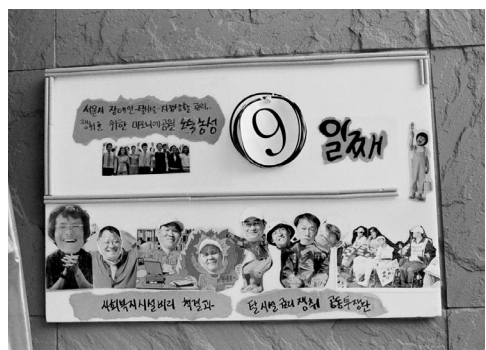 서울시 장애인 탈시설-자립생활 권리
쟁취를 위한 마로니에공원 노숙농성
9 일째
사회복지시설비리 척결과 탈시설 권리 쟁취 공동투쟁단